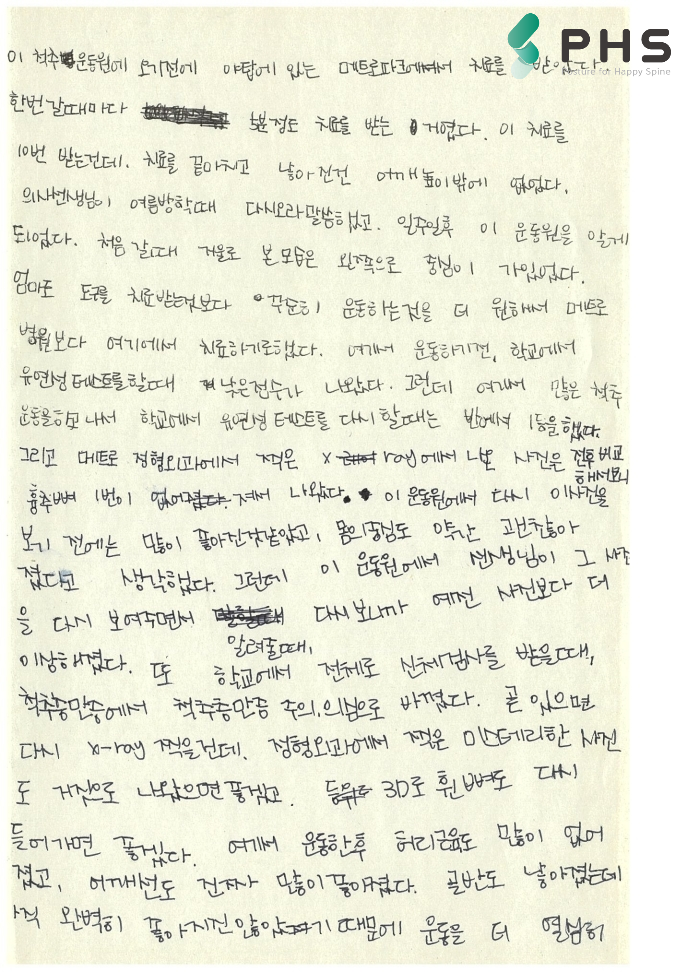 PHS
Posture for Happy Spine
이 척추운동원에 오기전에 야탑에 있는 메트로파크에서 치료를 받았다.
한번 갈때마다 분정도 치료를 받는 거였다. 이 치료를
10번 받는건데. 치료를 끝마치고 낳아진건 어깨높이밖에 없었다.
의사선생님이 여름방학때 다시오라말씀하셨고. 일주일후 이 운동원을 알게
되었다. 처음 갈때 거울로 본 모습은 왼쪽으로 중심이 가있었다.
엄마도 도구를 치료받는것보다 꾸준히 운동하는것을 더 원해서 메트로
병원보다 여기에서 치료하기로했다. 여기서 운동하기전, 학교에서
유연성테스트를할때 낮은점수가 나왔다. 그런데 여기서 많은 척추
운동을하고 나서 학교에서 유연성 테스트를 다시할때는 반에서 1등을했다.
그리고 메트로 정형외과에서 찍은 x ray에서 나온 사진은 전후 비교
해서보니
흉추뼈 1번이 없어졌다. 져서 나왔다. 이 운동원에서 다시 이사진을
보기 전에는 많이 좋아진것같았고, 몸의중심도 약간 괜찮아
졌다고 생각했다. 그런데 이 운동원에서 선생님이 그 사진
을 다시 보여주면서 다시보니까 예전 사진보다 더
알려줄때,
이상해졌다. 또 학교에서 전체로 신체검사를 받을때,
척추측만증에서 척추측만증 주의.의심으로 바꼈다. 곧 있으면
다시 x-ray 찍을건데. 정형외과에서 찍은 미스테리한 사진
도 거짓으로 나왔으면좋겠고. 3D로 휜뼈도 다시
들어가면 좋겠다. 여기서 운동한후 허리굽음도 많이 없어
졌고, 어깨선도 진짜 많이좋아졌다. 골반도 낳아졌는데
아직 완벽히 좋아지진않았기때문에 운동을 더 열심히